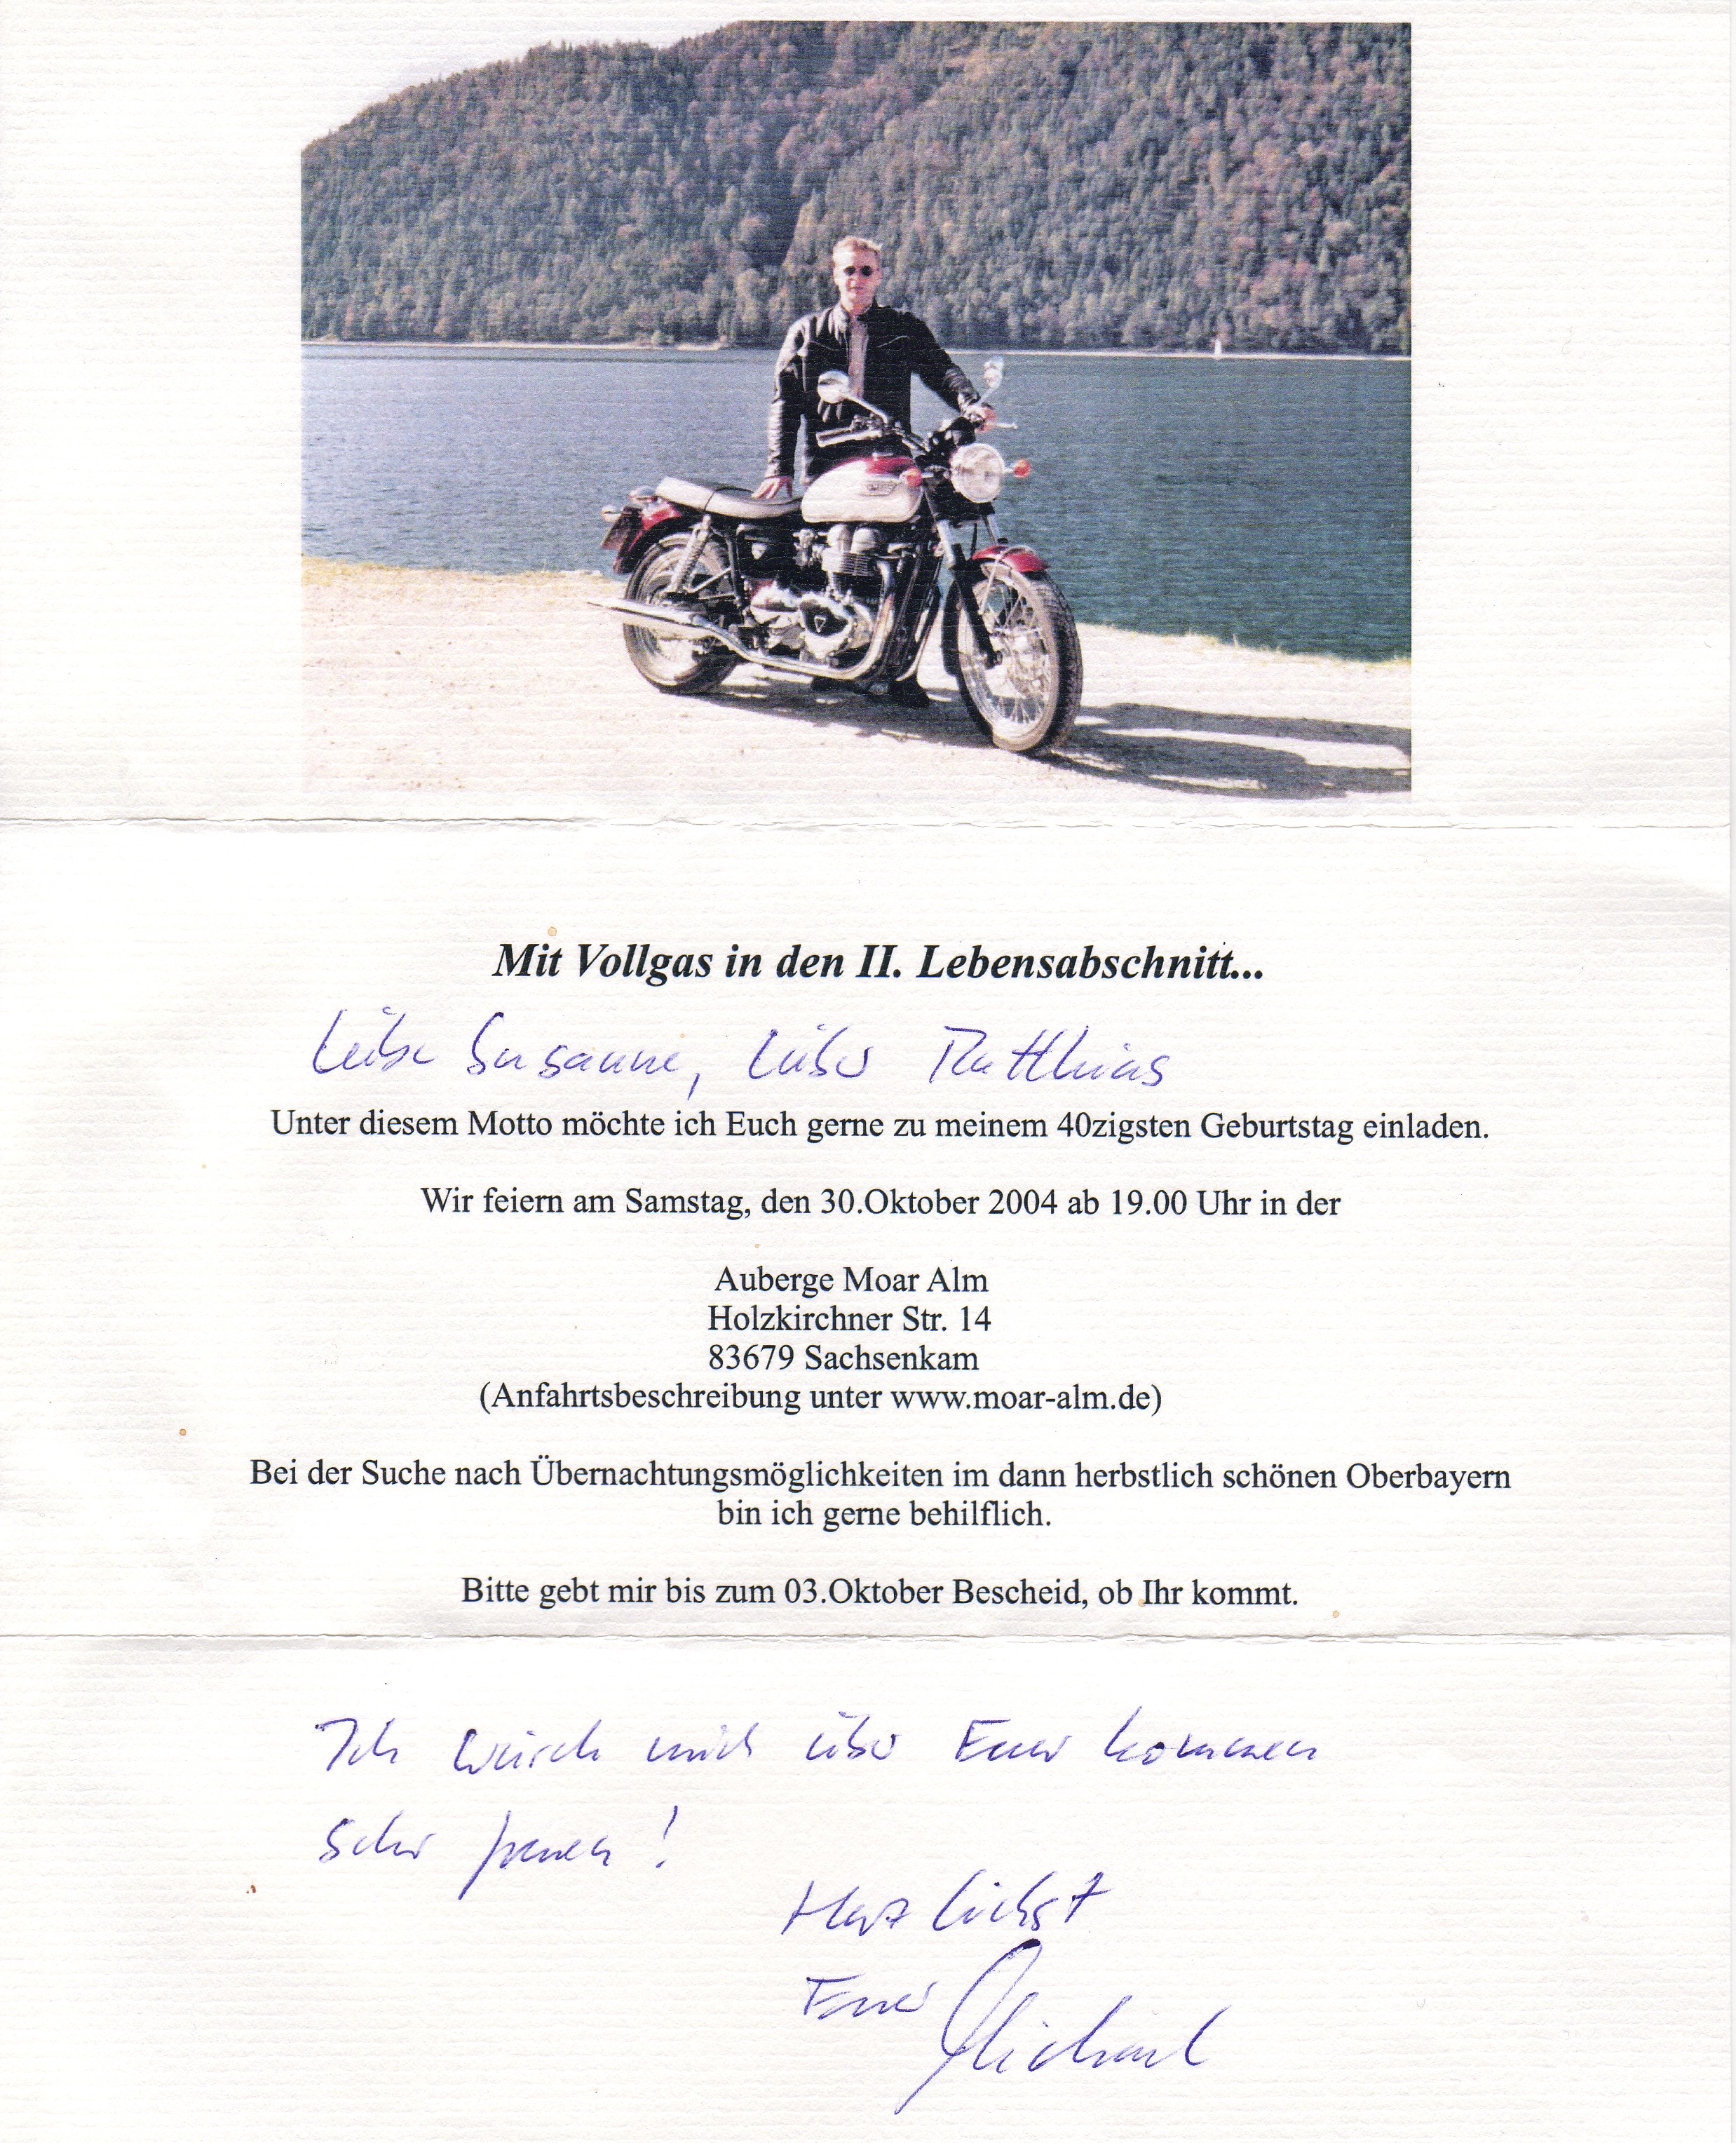 Mit Vollgas in den II. Lebensabschnitt...
Liebe Susanne, Lieber Matthias
Unter diesem Motto möchte ich Euch gerne zu meinem 40zigsten Geburtstag einladen.
Wir feiern am Samstag, den 30.Oktober 2004 ab 19.00 Uhr in der
Auberge Moar Alm
Holzkirchner Str. 14
83679 Sachsenkam
(Anfahrtsbeschreibung unter www.moar-alm.de)
Bei der Suche nach Übernachtungsmöglichkeiten im dann herbstlich schönen Oberbayern
bin ich gerne behilflich.
Bitte gebt mir bis zum 03.Oktober Bescheid, ob Ihr kommt.
Ich würde mich über Euer kommen
sehr freuen!
Herzlichst
Euer Michael